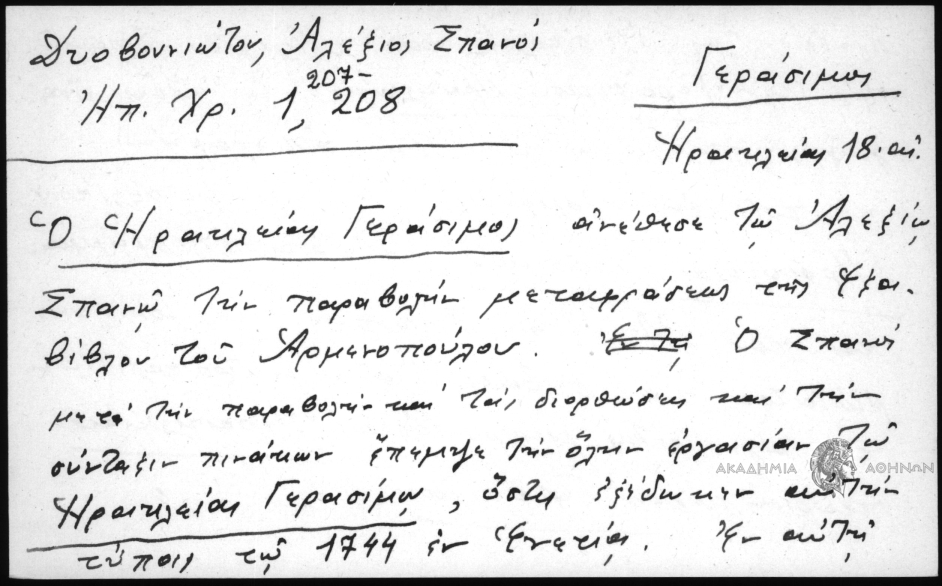 Δυοβουνιώτου, Ἀλέξιος Σπανός
Ἠπ. Χρ. 1, 207-208
Γεράσιμος
Ἡρακλείας 18. αἰ.
Ὁ Ἡρακλείας Γεράσιμος ἀνέθεσε τῷ Ἀλεξίῳ
Σπανῷ τὴν παραβολὴν μεταφράσεως τῆς Ἑξα-
βίβλου τοῦ Ἀρμενοπούλου. Ἐν τῇ Ὁ Σπανὸς
μετὰ τὴν παραβολὴν καὶ τὰς διορθώσεις καὶ τὴν
σύνταξιν πινάκων ἔπεμψε τὴν ὅλην ἐργασίαν τῷ
Ἡρακλείας Γερασίμῳ, ὅστις ἐξέδωκεν αὐτὴν
τύποις τῷ 1744 ἐν Ἑνετίᾳ. Ἐν αὐτῇ
ΑΚΑΔΗΜΙΑ ΑΘΗΝΩΝ